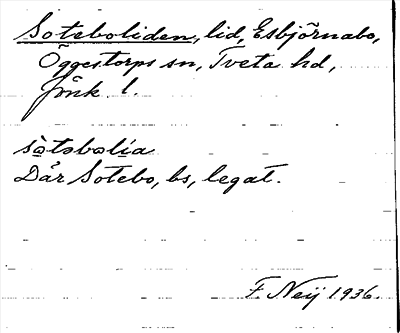 Soteboliden, lid, Esbjörnabo,
Öggestorps sn, Tveta hd,
Jönk. l.
sòtəbolía
Där Sotebo, bs, legat.
F. Neij 1936.